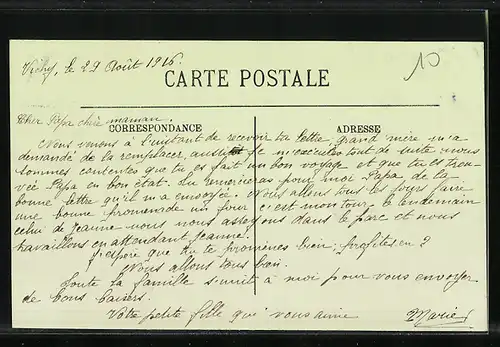 Vichy, le 29 Août 1916.
10
CARTE POSTALE
Cher Papa chère maman.
CORRESPONDANCE
ADRESSE
Nous venons à l'instant de recevoir ta lettre, grand mère m'a
demandé de la remplacer, aussitôt je m'exécute, tout de suite nous
sommes contentes que tu es fait un bon voyage et que tu es trou-
vée Papa en bon état. Tu remercieras pour moi Papa de la
bonne lettre qu'il m'a envoyer. Nous allons tous les jours faire
une bonne promenade un jour c'est mon tour, le lendemain
celui de Jeanne nous nous asseyons dans le parc et nous
travaillons en attendant Jeanne.
J'espère que tu te promènes bien; profites en ?
Nous allons tous bien.
Toute la famille s'unit à moi pour vous envoyer
de bons baisers.
Votre petite fille qui vous aime
Marie